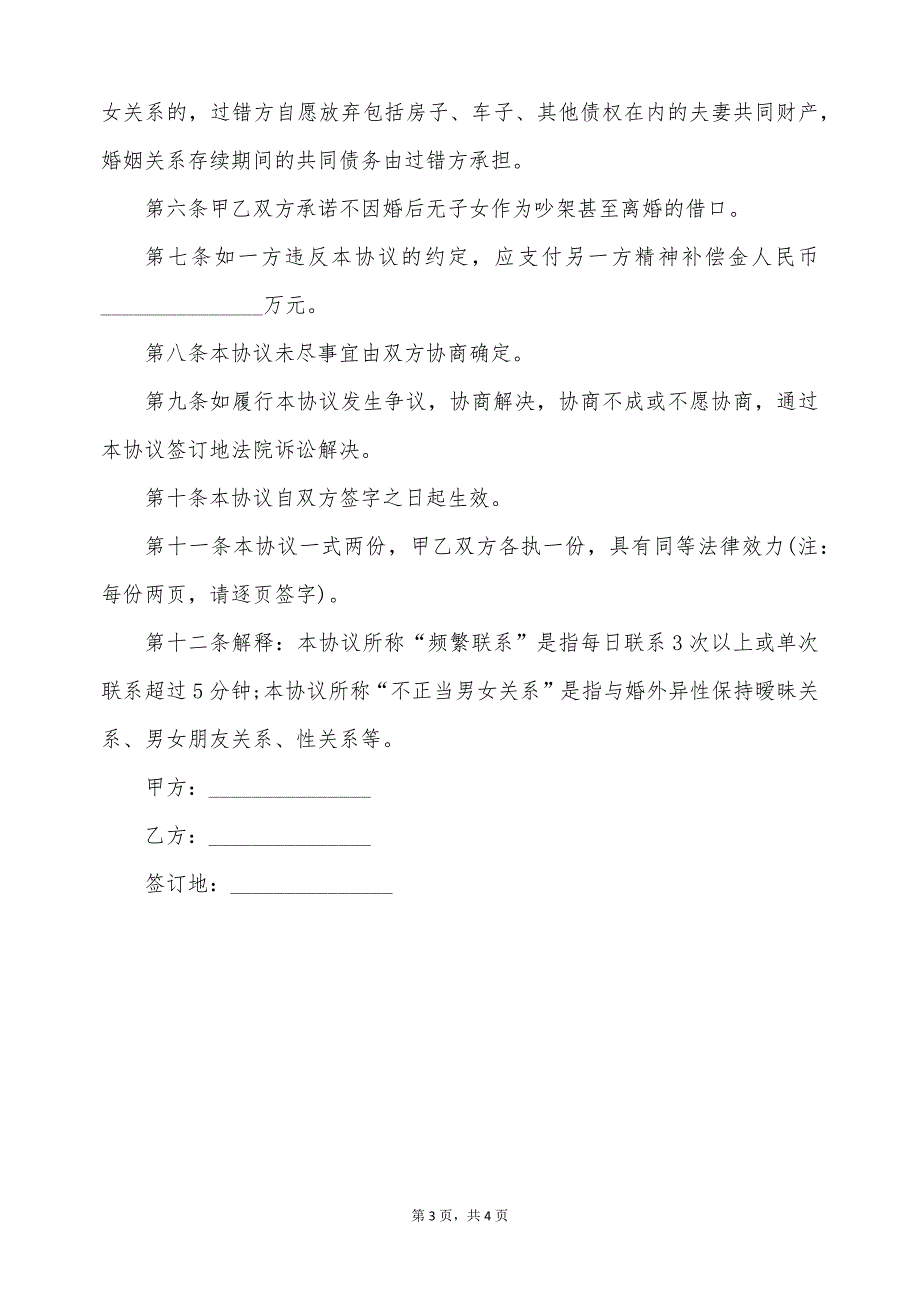 女关系的，过错方自愿放弃包括房子、车子、其他债权在内的夫妻共同财产，
婚姻关系存续期间的共同债务由过错方承担。
第六条甲乙双方承诺不因婚后无子女作为吵架甚至离婚的借口。
第七条如一方违反本协议的约定，应支付另一方精神补偿金人民币
_______________万元。
第八条本协议未尽事宜由双方协商确定。
第九条如履行本协议发生争议，协商解决，协商不成或不愿协商，通过
本协议签订地法院诉讼解决。
第十条本协议自双方签字之日起生效。
第十一条本协议一式两份，甲乙双方各执一份，具有同等法律效力(注：
每份两页，请逐页签字)。
第十二条解释：本协议所称“频繁联系”是指每日联系3次以上或单次
联系超过5分钟;本协议所称“不正当男女关系”是指与婚外异性保持暧昧关
系、男女朋友关系、性关系等。
甲方：_______________
乙方：_______________
签订地：_______________
第 3 页，共 4 页